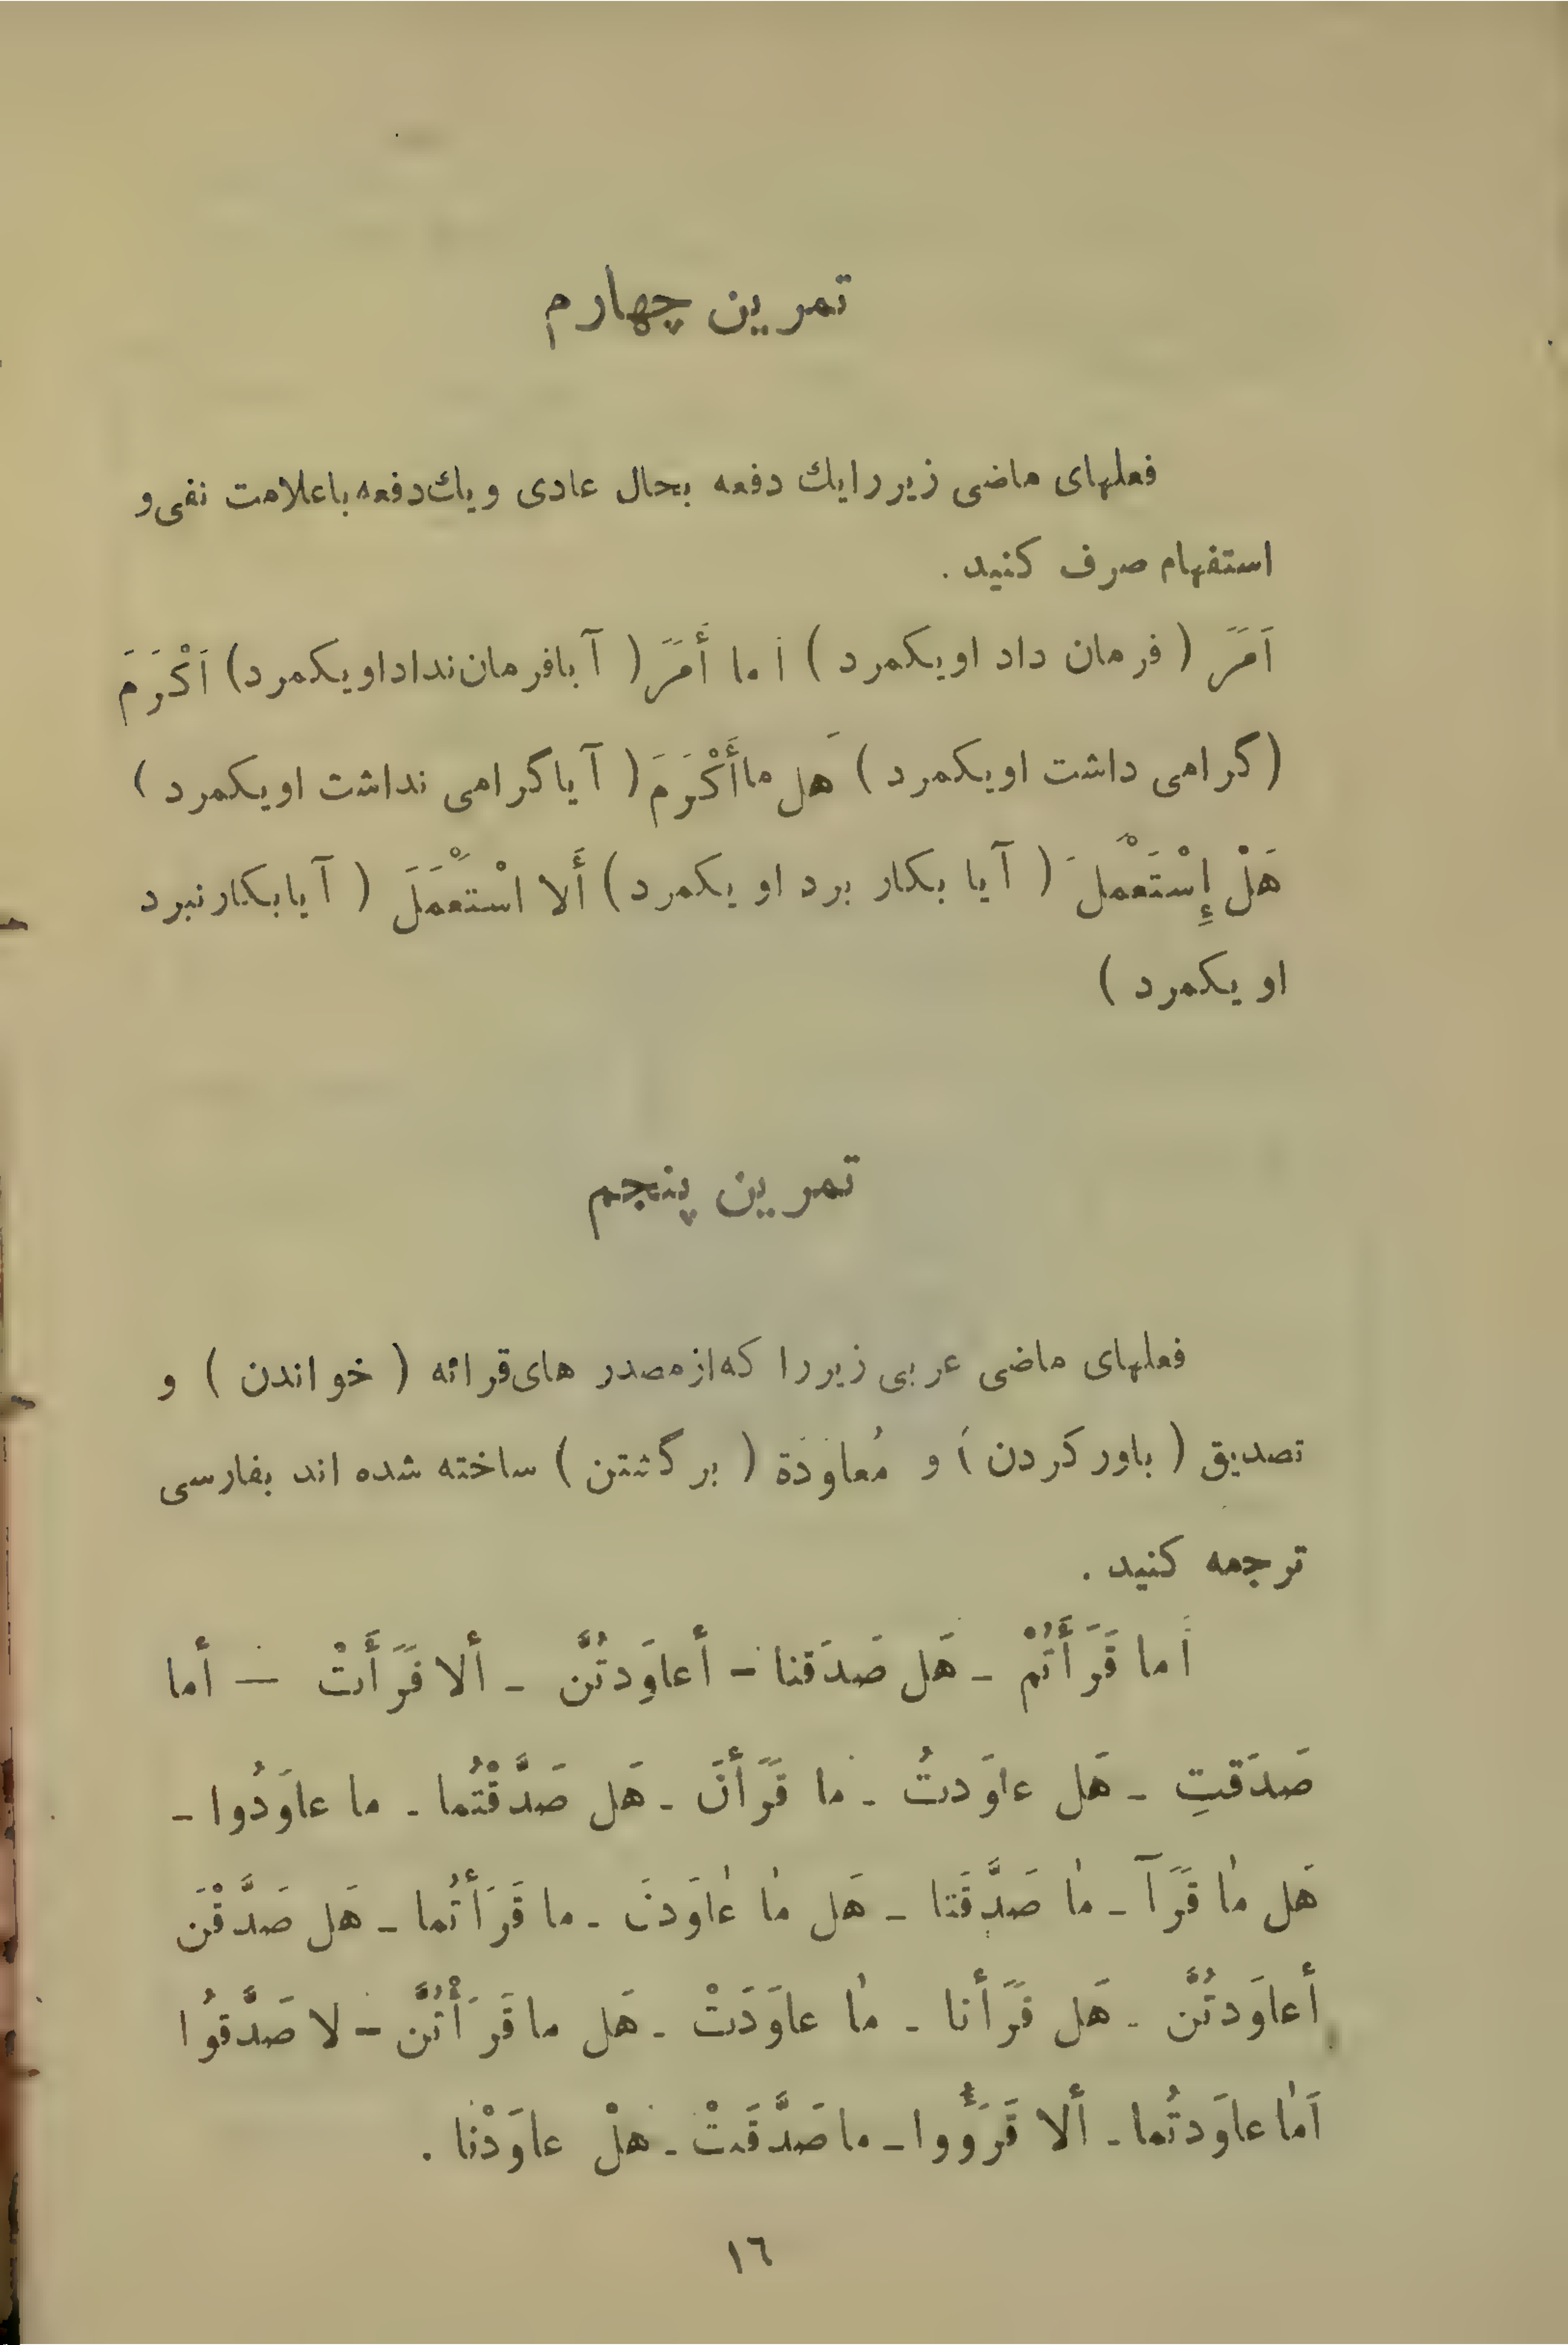 تمرین چهارم
فعلهای ماضی زیر را یك دفعه بحال عادی و یك دفعه با علامت نفی و
استفهام صرف کنید .
اَمَرَ ( فرمان داد او یکمرد ) اَ ما أَمَرَ ( آیا فرمان نداد او یکمرد ) اَكْرَمَ
( گرامی داشت او یکمرد ) هَل ما أَكْرَمَ ( آیا گرامی نداشت او یکمرد )
هَلْ إِسْتَعْمَلَ ( آیا بکار برد او یکمرد ) أَلا اسْتَعْمَلَ ( آیا بکار نبرد
او یکمرد )
تمرین پنجم
فعلهای ماضی عربی زیر را که از مصدر های قرائه ( خواندن ) و
تصدیق ( باور کردن ) و مُعاوَدَة ( برگشتن ) ساخته شده اند بفارسی
ترجمه کنید .
اَما قَرَأَتُمْ - هَل صَدَقنا - أعاوَدتُنَّ - ألا قَرَأَتْ - أما
صَدَقتِ - هَل عاوَدتُ - ما قَرَأنَ - هَل صَدَّقْتُما - ما عاوَدُوا -
هَل مٰا قَرَآ - مٰا صَدَّقَتا - هَل مٰا عٰاوَدنَ - ما قَرَأتُما - هَل صَدَّقْنَ
أعاوَدتُنَّ - هَل قَرَأنا - مٰا عاوَدَتْ - هَل ما قَرَأْتُنَّ - لا صَدَّقُوا
اَمٰا عاوَدتُما - ألا قَرَؤُوا - ما صَدَّقَتْ - هلْ عاوَدْنا .
١٦